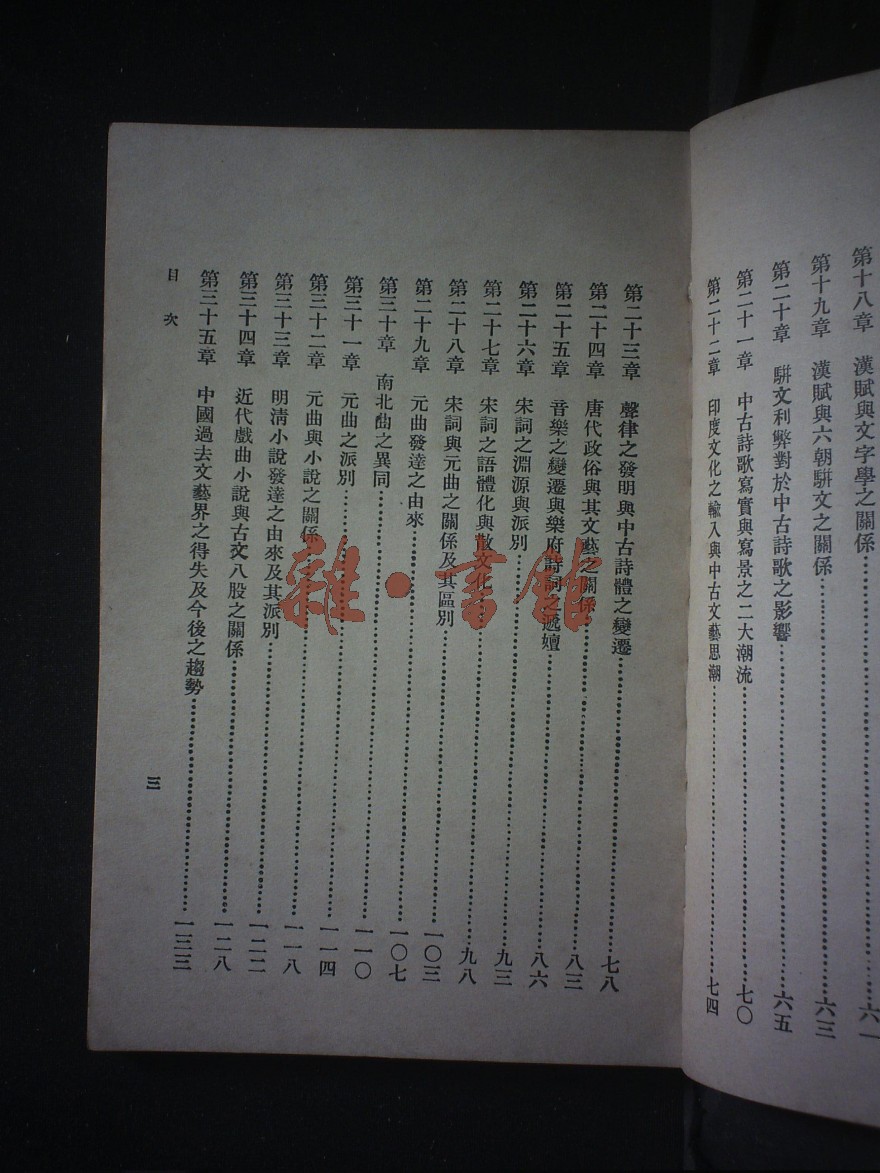 第十八章 漢賦與文字學之關係……六一
第十九章 漢賦與六朝駢文之關係……六三
第二十章 駢文利弊對於中古詩歌之影響……六五
第二十一章 中古詩歌寫實與寫景之二大潮流……七〇
第二十二章 印度文化之輸入與中古文藝思潮……七四
第二十三章 聲律之發明與中古詩體之變遷……七八
第二十四章 唐代政俗與其文藝之關係……八三
第二十五章 音樂之變遷與樂府詩詞之遞嬗……八六
第二十六章 宋詞之淵源與派別……九三
第二十七章 宋詞之語體化與散文化……九八
第二十八章 宋詞與元曲之關係及其區別……一〇三
第二十九章 元曲發達之由來……一〇七
第三十章 南北曲之異同……一一〇
第三十一章 元曲之派別……一一四
第三十二章 元曲與小說之關係……一一八
第三十三章 明清小說發達之由來及其派別……一二二
第三十四章 近代戲曲小說與古文八股之關係……一二八
第三十五章 中國過去文藝界之得失及今後之趨勢……一三三
目次
三
雜·書館